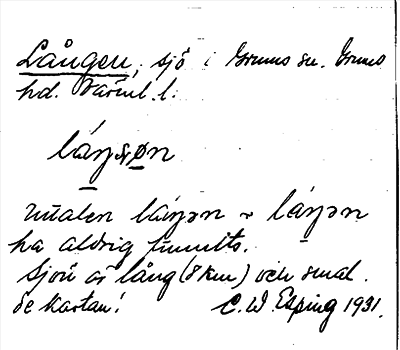 Lången, sjö i Grums sn. Grums
hd. Värml. l.
láŋən
Uttalen láŋən
ha aldrig funnits.
Sjön är lång (8 km) och smal.
Se kartan! C. W. Esping 1931.